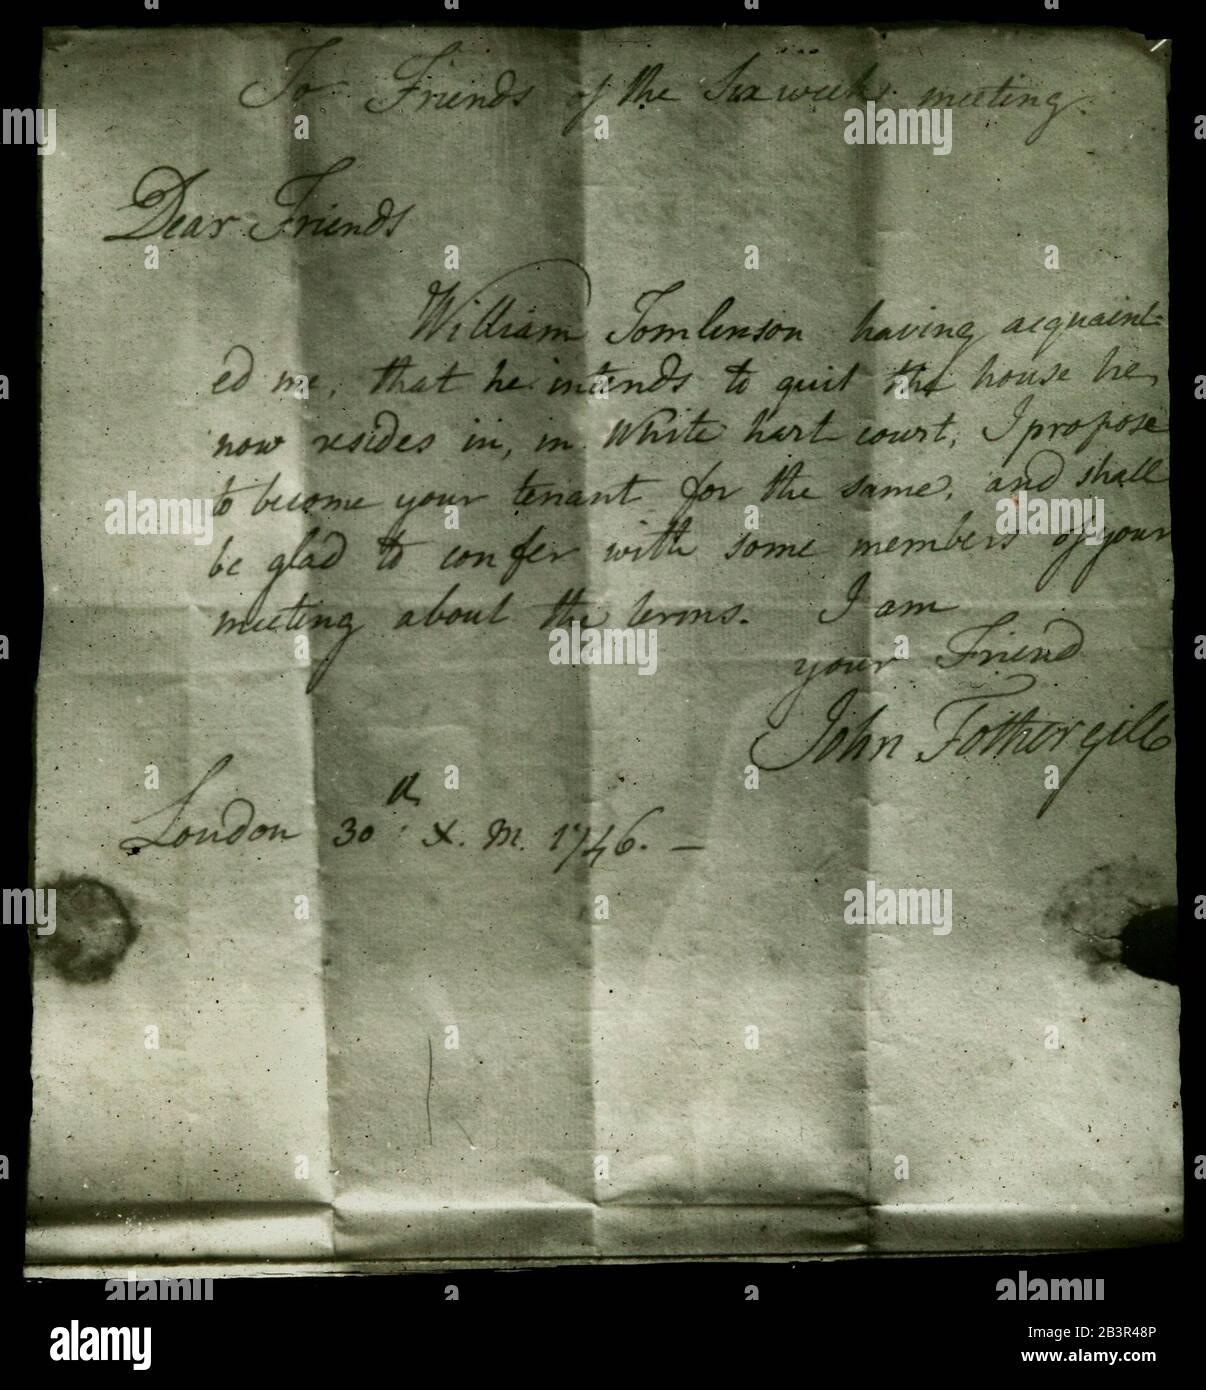 To Friends of the Six weeks meeting.
Dear Friends
William Tomlinson having acquaint-
ed me, that he intends to quit the house he
now resides in, in White hart court, I propose
to become your tenant for the same, and shall
be glad to confer with some members of your
meeting about the terms. I am
your Friend
John Fothergill
London 30th X. M. 1746. —
alamy
Image ID: 2B3R48P
www.alamy.com